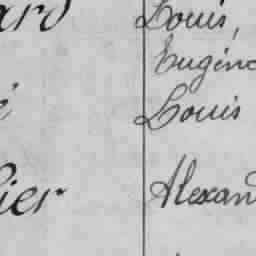 ard Louis,
Eugène
é Louis
lier Alexan